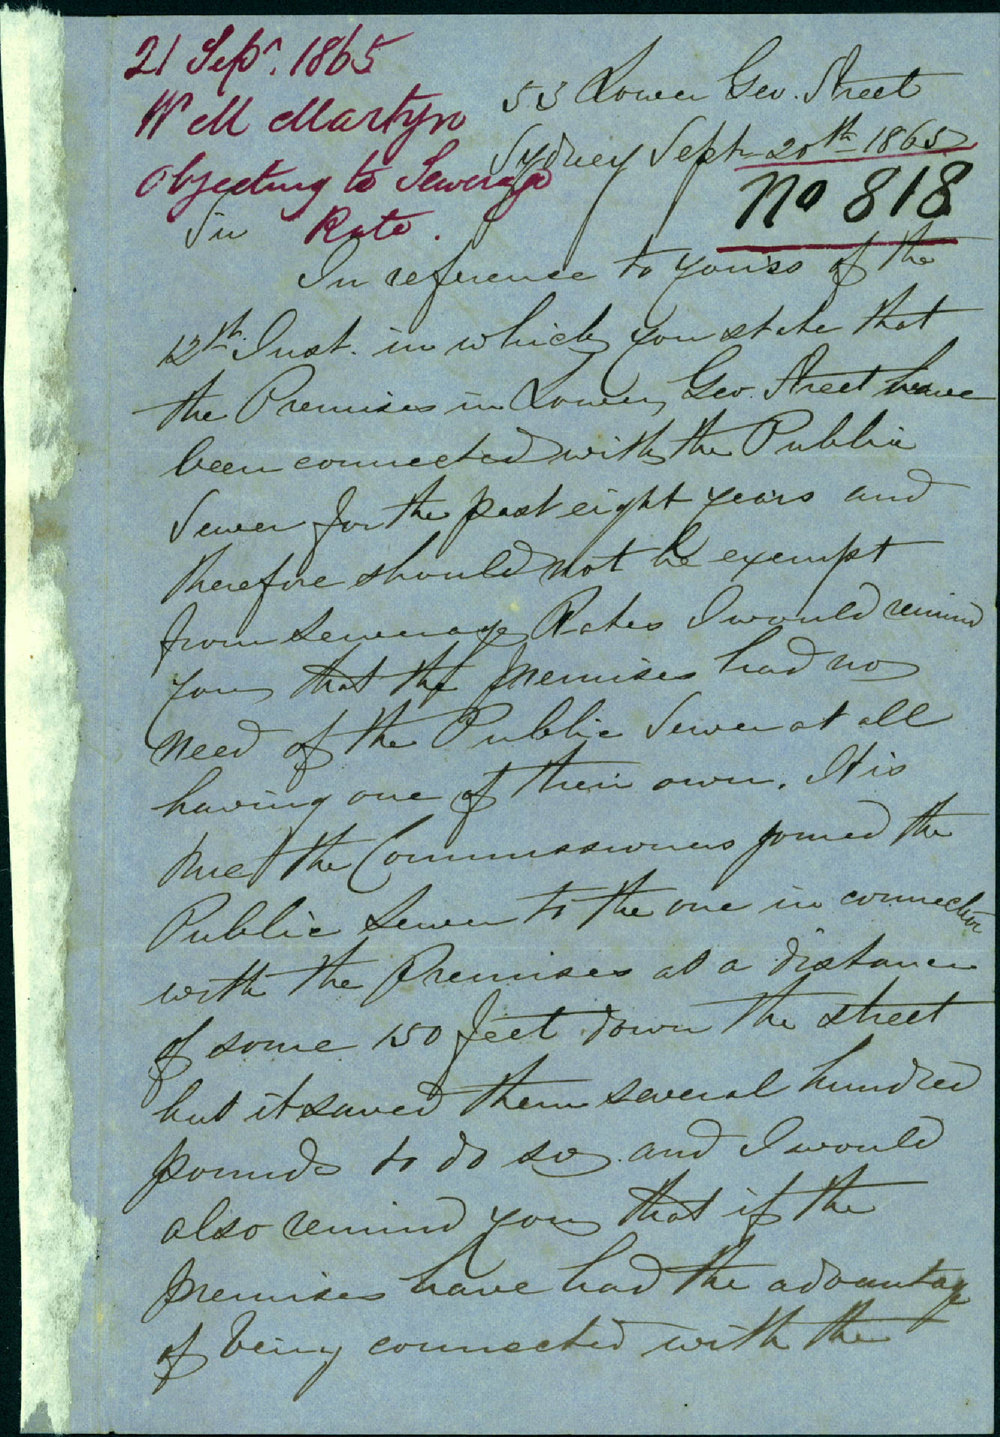 21 Sepr. 1865
Wm Martyn
Objecting to Sewerage
Rate.
53 Lower Geo. Street
Sydney Sept 20th 1865
No 818
Sir
In reference to yours of the
12th Inst. in which you state that
the Premises in Lower Geo. Street have
been connected with the Public
Sewer for the past eight years and
therefore should not be exempt
from Sewerage Rates I would remind
you that the premises had no
need of the Public Sewer at all
having one of their own. It is
true the Commissioners joined the
Public Sewer to the one in connection
with the Premises at a distance
of some 150 feet down the street
but it saved them several hundred
pounds to do so, and I would
also remind you that if the
premises have had the advantage
of being connected with the